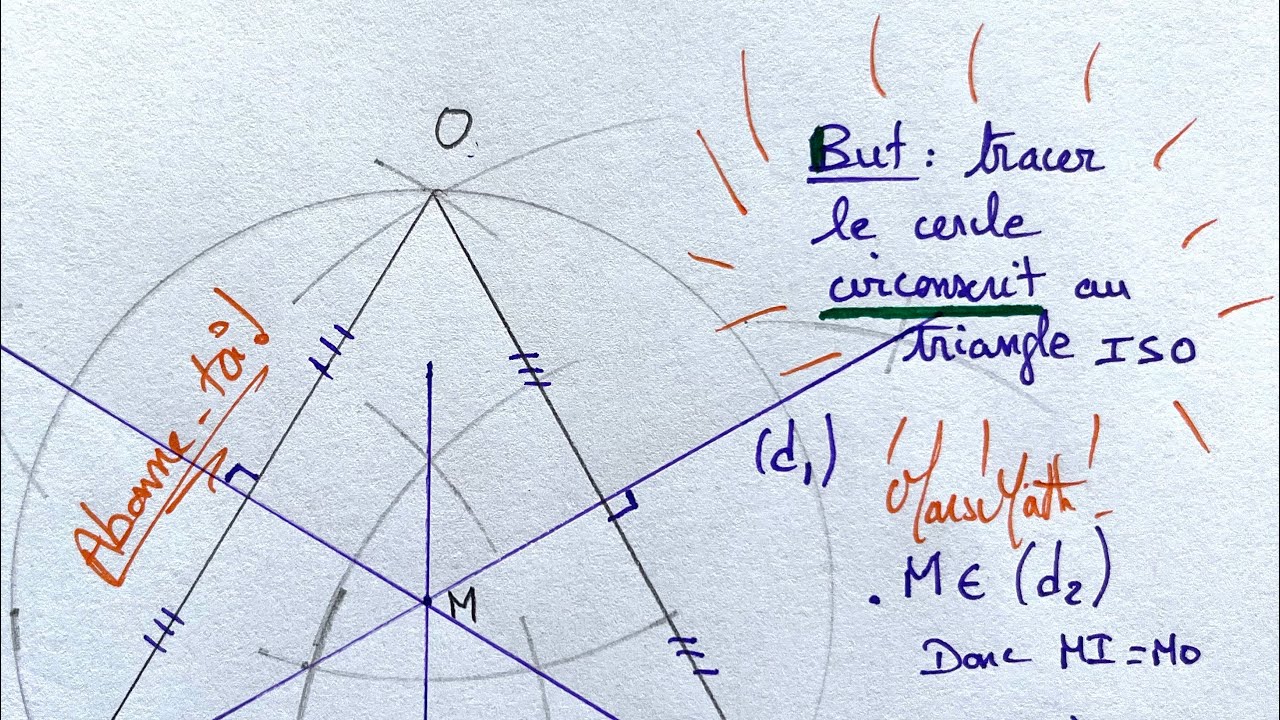 O
But : tracer
le cercle
circonscrit au
triangle ISO
Abonne-toi
(d₁)
MarsMath
M
. M ∈ (d₂)
Donc MI = MO